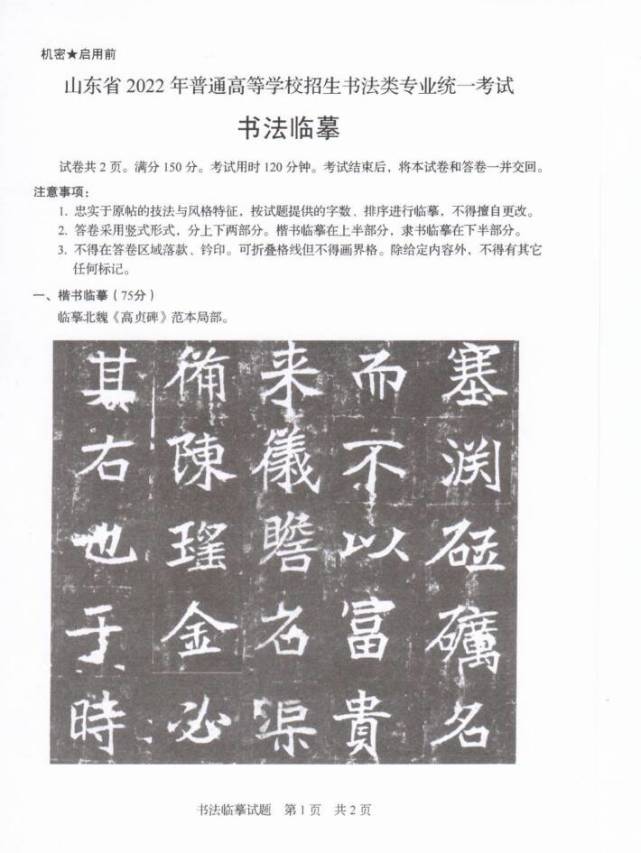 机密★启用前
山东省 2022 年普通高等学校招生书法类专业统一考试
书法临摹
试卷共 2 页。满分 150 分。考试用时 120 分钟。考试结束后，将本试卷和答卷一并交回。
注意事项：
1. 忠实于原帖的技法与风格特征，按试题提供的字数、排序进行临摹，不得擅自更改。
2. 答卷采用竖式形式，分上下两部分。楷书临摹在上半部分，隶书临摹在下半部分。
3. 不得在答卷区域落款、钤印。可折叠格线但不得画界格。除给定内容外，不得有其它
任何标记。
一、楷书临摹（75分）
临摹北魏《高贞碑》范本局部。
塞渕砡礪名
而不以富貴
来儀瞻名渠
俻陳瑤金必
其右也于時
书法临摹试题 第 1 页 共 2 页